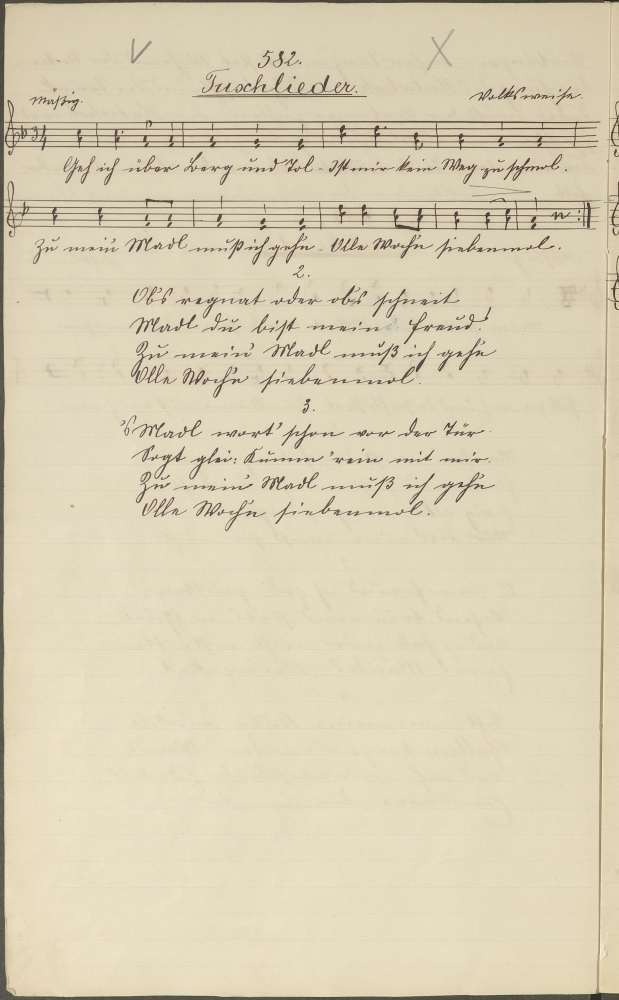 582.
Tuschlieder.
Mäßig.
Volksweise.
3/4
Geh ich über Berg und Tol - Ist mir kein Weg zu schmol.
Zu mein' Madl muß ich gehn - Olle Woch'n siebenmol.
2.
Ob's regnat oder ob's schneit
Madl du bist mein Freud!
Zu mein' Madl muß ich gehn
Olle Woch'n siebenmol.
3.
's Madl wort' schon vor der Tür
Sogt glei: Kumm 'rein mit mir.
Zu mein' Madl muß ich gehn
Olle Woch'n siebenmol.